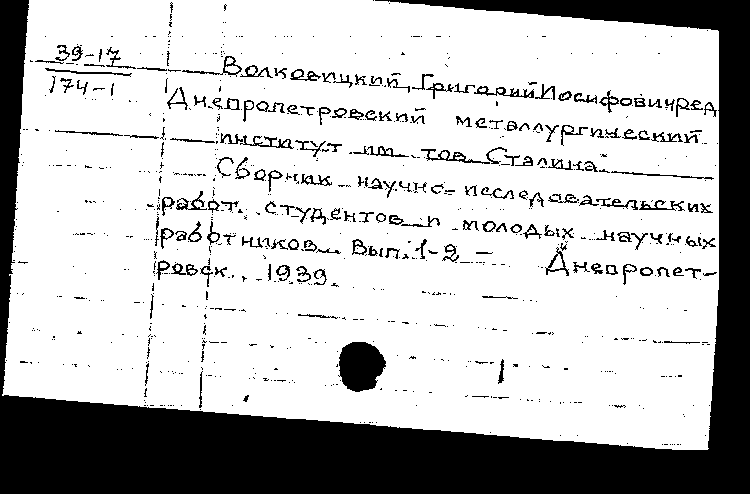 39-17
174-1
Волковицкий, Григорий Иосифович ред
Днепропетровский металлургический
институт им тов. Сталина.
Сборник научно-исследовательских
работ. студентов и молодых научных
работников. Вып. 1-2 - Днепропет-
ровск. 1939.